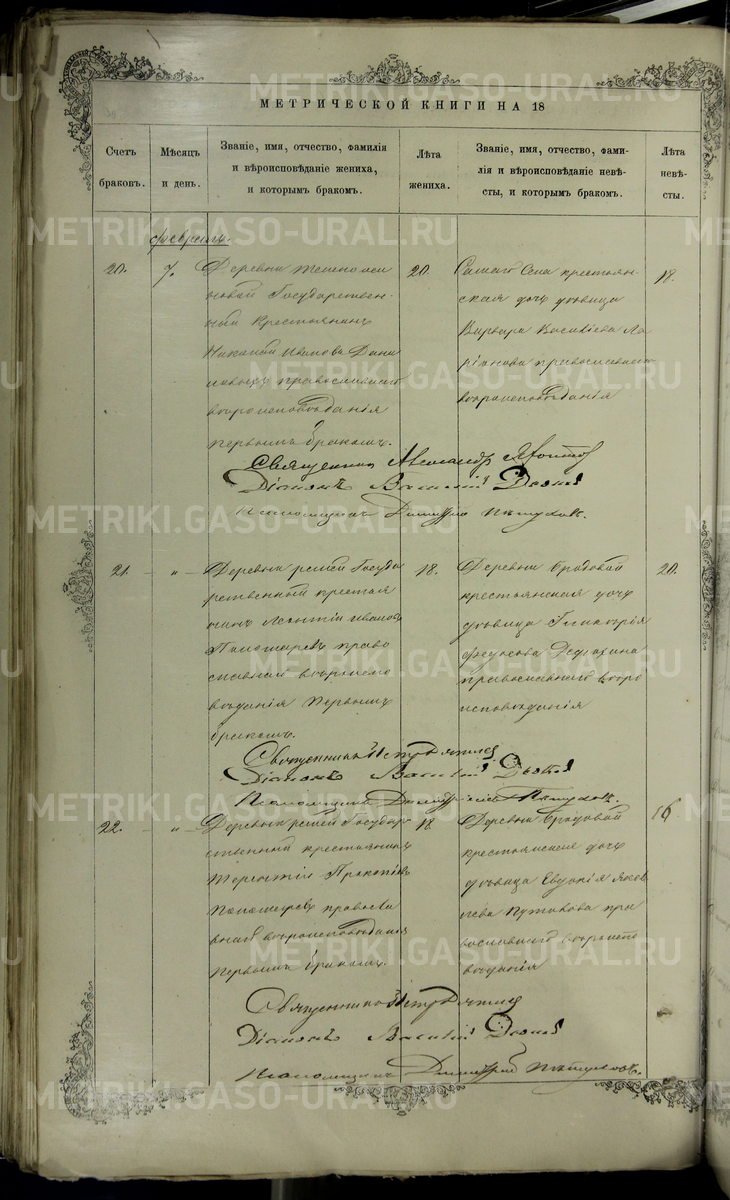 МЕТРИЧЕСКОЙ КНИГИ НА 18
Счетъ браковъ.
Мѣсяцъ и день.
Званіе, имя, отчество, фамилія и вѣроисповѣданіе жениха, и которымъ бракомъ.
Лѣта жениха.
Званіе, имя, отчество, фамилія и вѣроисповѣданіе невѣсты, и которымъ бракомъ.
Лѣта невѣсты.
февраль.
20.
7.
Деревни
новой Государствен-
ный Крестьянинъ
Никаноръ Ивановъ Дани
ловыхъ православнаго
вѣроисповѣданія
первымъ бракомъ.
20.
Самаго Села крестьян-
ская дочь дѣвица
Варвара Васильева Ла
ріонова православнаго
вѣроисповѣданія
18.
Священникъ Александръ
Діаконъ Василій
Псаломщикъ Димитрій Пѣтуховъ.
21.
"
Деревни Государ
ственный крестья
нинъ Леонтій Ивановъ
Пономаревъ право
славнаго вѣроиспо
вѣданія первымъ
бракомъ.
18.
Деревни Бродовой
крестьянская дочь
дѣвица Гликерія
православнаго вѣро
исповѣданія
20.
Священникъ Петръ
Діаконъ Василій
Псаломщикъ Димитрій Пѣтуховъ.
22.
"
Деревни Государ
ственный крестьянинъ
Терентій Прокопіевъ
Пономаревъ правосла
внаго вѣроисповѣданія
первымъ бракомъ.
18
Деревни Бродовой
крестьянская дочь
дѣвица Евдокія Яков
лева пра
вославнаго вѣроиспо
вѣданія
16
Священникъ Петръ
Діаконъ Василій
Псаломщикъ Димитрій Пѣтуховъ.
METRIKI.GASO-URAL.RU